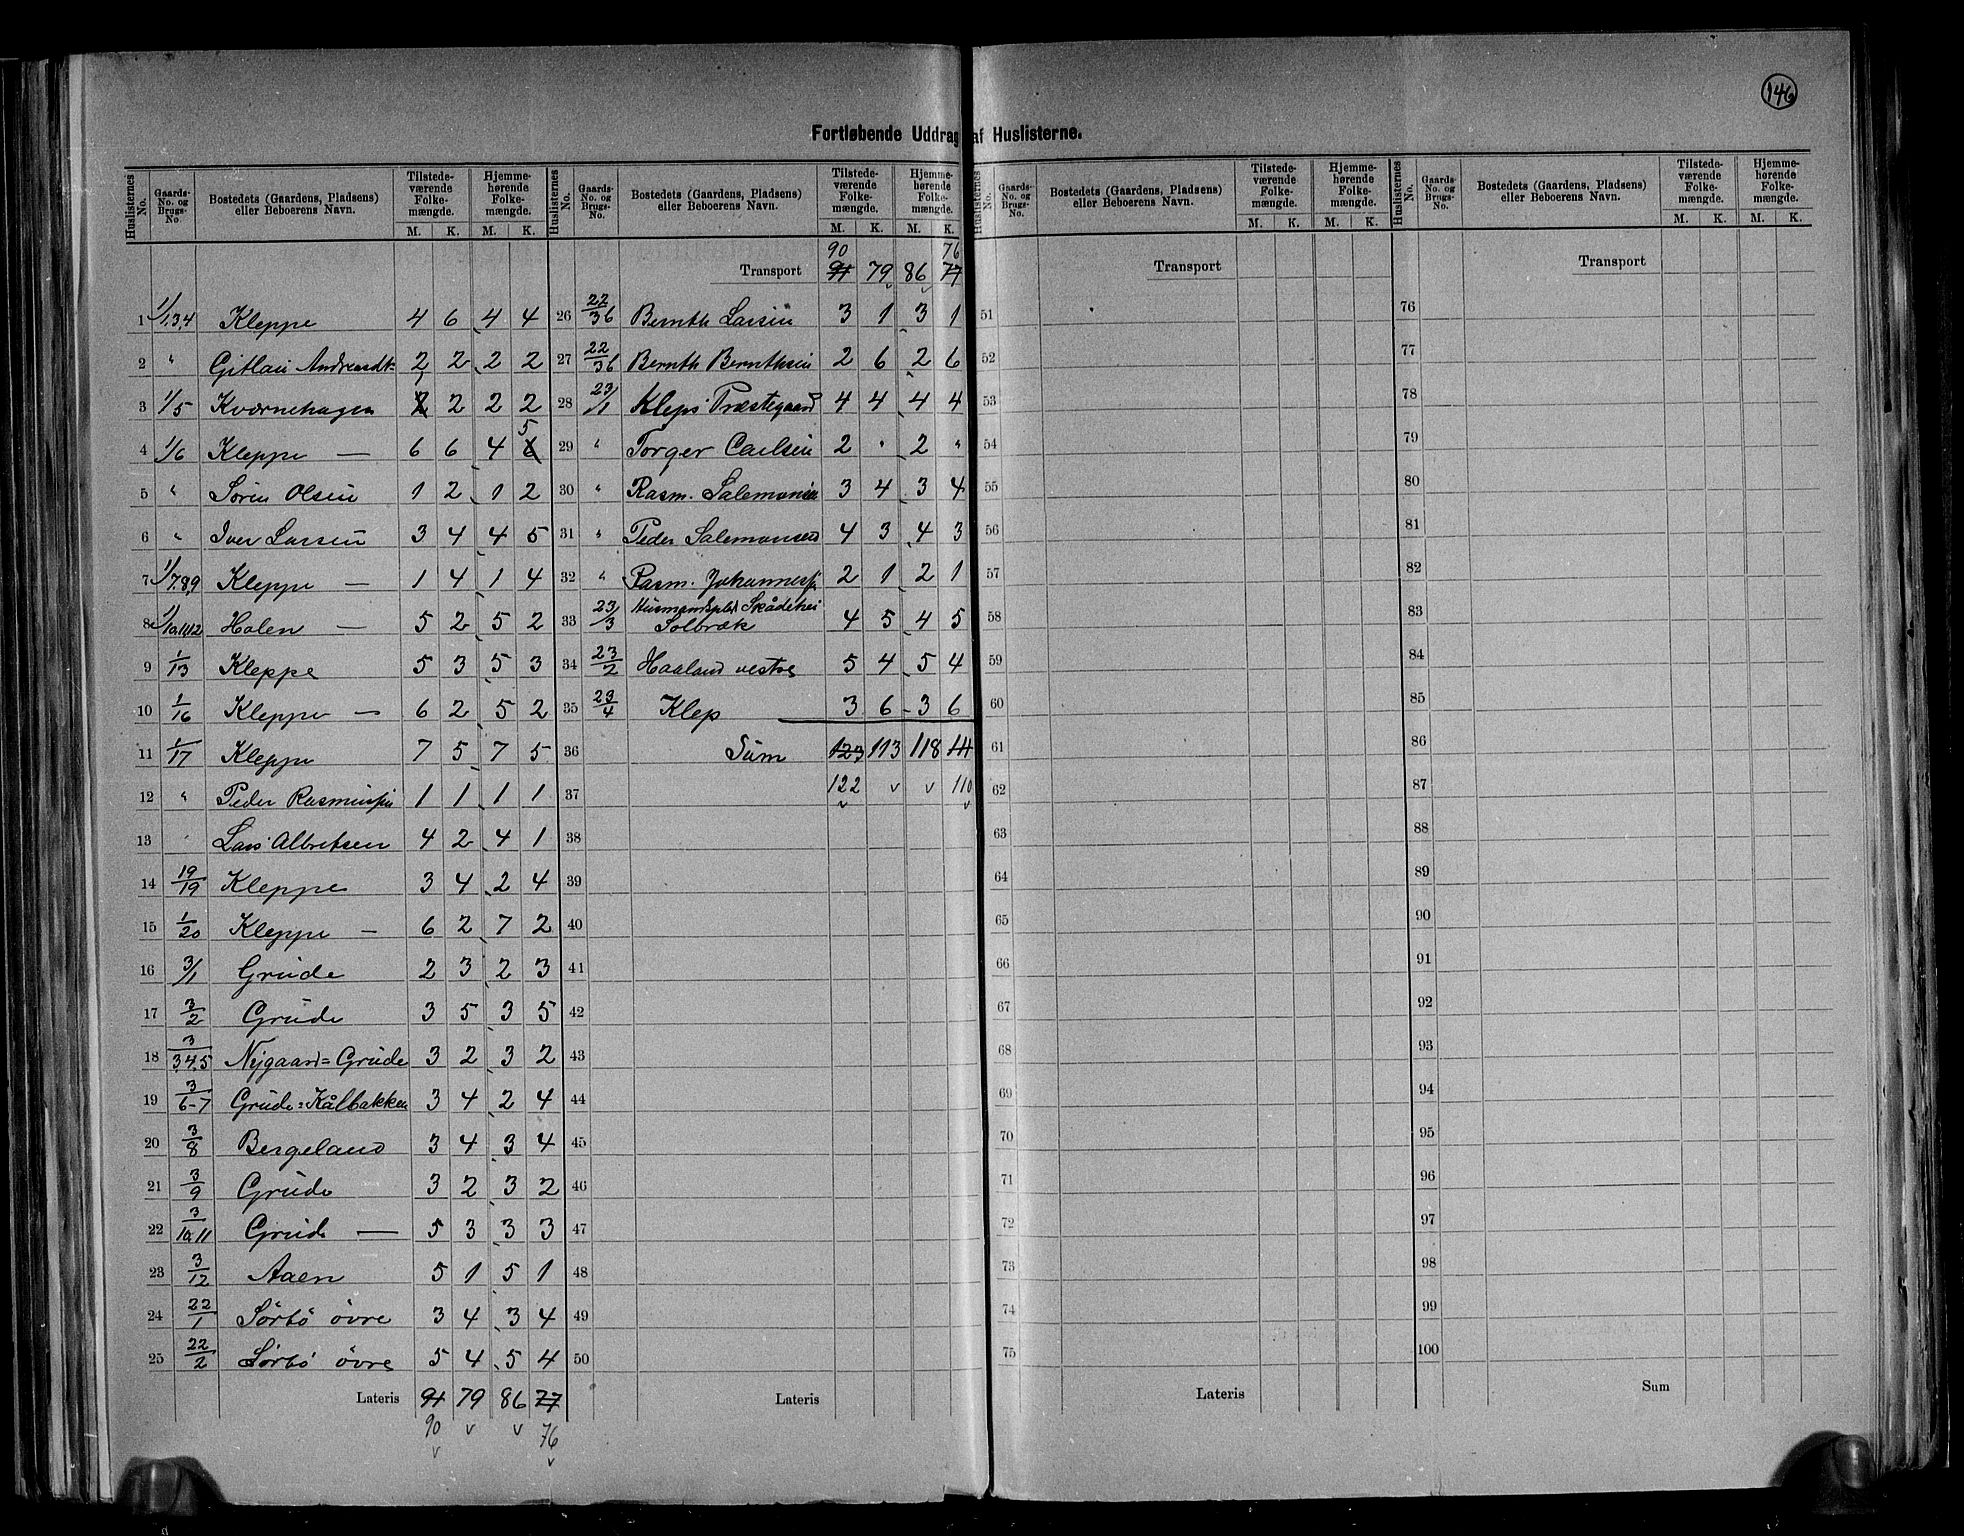 146
Fortløbende Uddrag af Huslisterne.
Huslisternes No. | Gaards-No. og Brugs-No. | Bostedets (Gaardens, Pladsens) eller Beboerens Navn. | Tilstedeværende Folkemængde. M. K. | Hjemmehørende Folkemængde. M. K.
1 1/1,3,4 Kleppe 4 6 4 4
2 " 2 2 2 2
3 1/5 Kværnehagen 2 1 2 2 2
4 1/6 Kleppe — 6 6 4 6 5
5 " Sören Olsen 1 2 1 2
6 " Iver Larsen 3 4 4 5
7 1/7,8,9 Kleppe — 1 4 1 4
8 1/10,11,12 Holen — 5 2 5 2
9 1/13 Kleppe 5 3 5 3
10 1/16 Kleppe — 6 2 5 2
11 1/17 Kleppe 7 5 7 5
12 " Peder Rasmussen 1 1 1 1
13 " Lars Albretsen 4 2 4 1
14 19/19 Kleppe 3 4 2 4
15 1/20 Kleppe — 6 2 7 2
16 3/1 Grude 2 3 2 3
17 3/2 Grude 3 5 3 5
18 3/3,4,5 Nygaard = Grude 3 2 3 2
19 3/6-7 Grude = Kålbakken 3 4 2 4
20 3/8 Bergeland 3 4 3 4
21 3/9 Grude 3 2 3 2
22 3/10,11 Grude — 5 3 3 3
23 3/12 Aaen 5 1 5 1
24 22/1 Sörbö övre 3 4 3 4
25 22/2 Sörbö övre 5 4 5 4
Lateris 91 79 86 77
90 v v 76
v v
Huslisternes No. | Gaards-No. og Brugs-No. | Bostedets (Gaardens, Pladsens) eller Beboerens Navn. | Tilstedeværende Folkemængde. M. K. | Hjemmehørende Folkemængde. M. K.
90 76
Transport 91 79 86 77
26 22/36 Bernth Larsen 3 1 3 1
27 22/36 Bernth Bernthsen 2 6 2 6
28 23/1 Kleps Præstegaard 4 4 4 4
29 " Torger Carlsen 2 " 2 "
30 " Rasm. Salemonsen 3 4 3 4
31 " Peder Salemonsen 4 3 4 3
32 " Rasm. Johannessen 2 1 2 1
33 23/3 Husmandspld
Solbræk 4 5 4 5
34 23/2 Haaland vestre 5 4 5 4
35 23/4 Klep 3 6 3 6
36 Sum 123 113 118 111
37 122 v v 110
v v
38
39
40
41
42
43
44
45
46
47
48
49
50
Lateris
Huslisternes No. | Gaards-No. og Brugs-No. | Bostedets (Gaardens, Pladsens) eller Beboerens Navn. | Tilstedeværende Folkemængde. M. K. | Hjemmehørende Folkemængde. M. K.
Transport
51
52
53
54
55
56
57
58
59
60
61
62
63
64
65
66
67
68
69
70
71
72
73
74
75
Lateris
Huslisternes No. | Gaards-No. og Brugs-No. | Bostedets (Gaardens, Pladsens) eller Beboerens Navn. | Tilstedeværende Folkemængde. M. K. | Hjemmehørende Folkemængde. M. K.
Transport
76
77
78
79
80
81
82
83
84
85
86
87
88
89
90
91
92
93
94
95
96
97
98
99
100
Sum